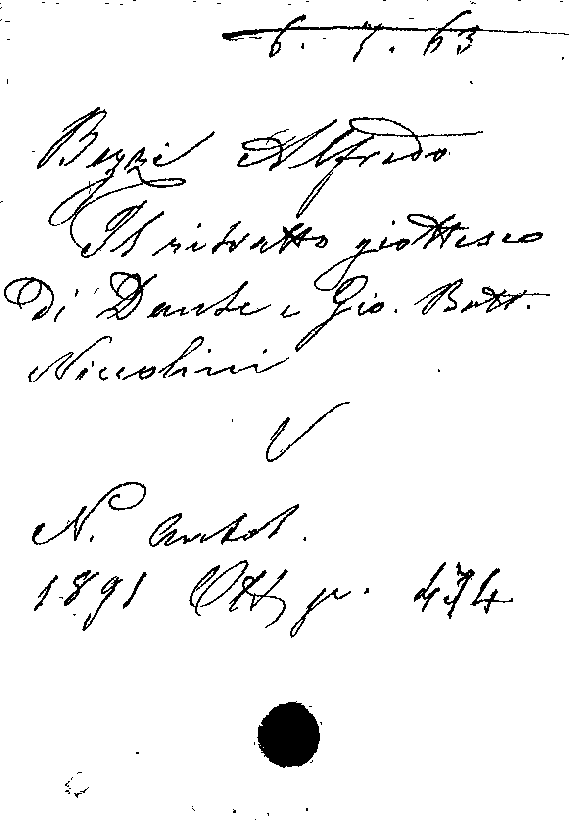 6. 7. 63
Bezzi Alfredo
Il ritratto giottesco
di Dante e Gio. Batt.
Niccolini
V
N. Antol.
1891 Ott p. 474